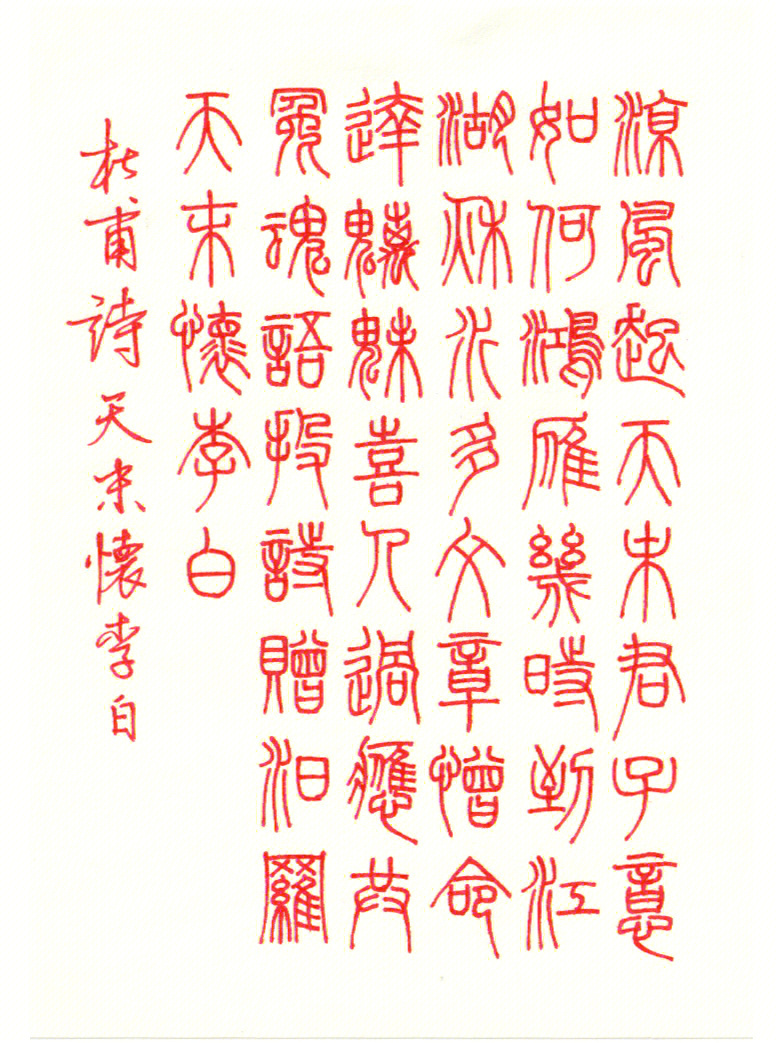 涼風起天末君子意
如何鴻雁幾時到江
湖秋水多文章憎命
達魑魅喜人過應共
冤魂語投詩贈汨羅
天末懷李白
杜甫詩天末懷李白